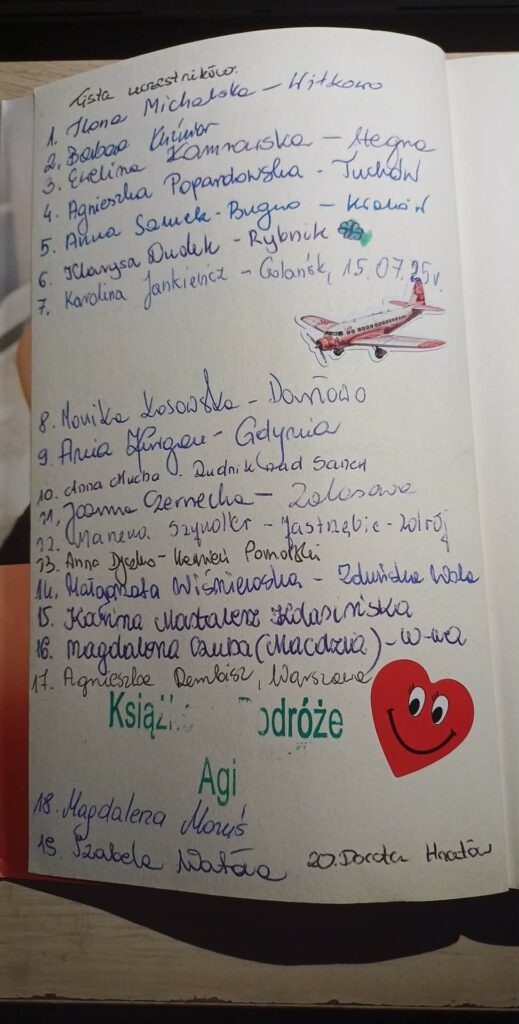 Lista uczestników:
1. Ilona Michalska – Witkowo
2. Barbara Kuźniar
3. Ewelina Kamrowska – Stegna
4. Agnieszka Popardowska - Tuchów
5. Anna Samek-Bugno – Kraków
6. Klarysa Dudek - Rybnik
7. Karolina Jankiewicz – Gdańsk, 15.07.25r.
8. Monika Kosowska – 
9. Ania - Gdynia
10. Anna Mucha - Rudnik nad Sanem
11. Joanna Czernecka –
12. Szynoller - Jastrzębie-Zdrój
13. Anna - Kamień Pomorski
14. Małgorzata Wiśniewska - Zduńska Wola
15. Karina Mastalerz
16. Magdalena Czuba (Macdzia) - W-wa
17. Agnieszka Dembisz, Warszawa
Książk Podróże
Agi
18. Magdalena
19. Izabela
20. Dorota